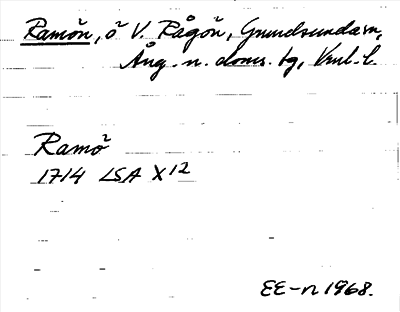 Ramön, ö V. Rågön, Grundsundasn,
Ång. n. doms. tg, Vnl. l.
Ramö
1714 LSA X12
EE-n 1968.